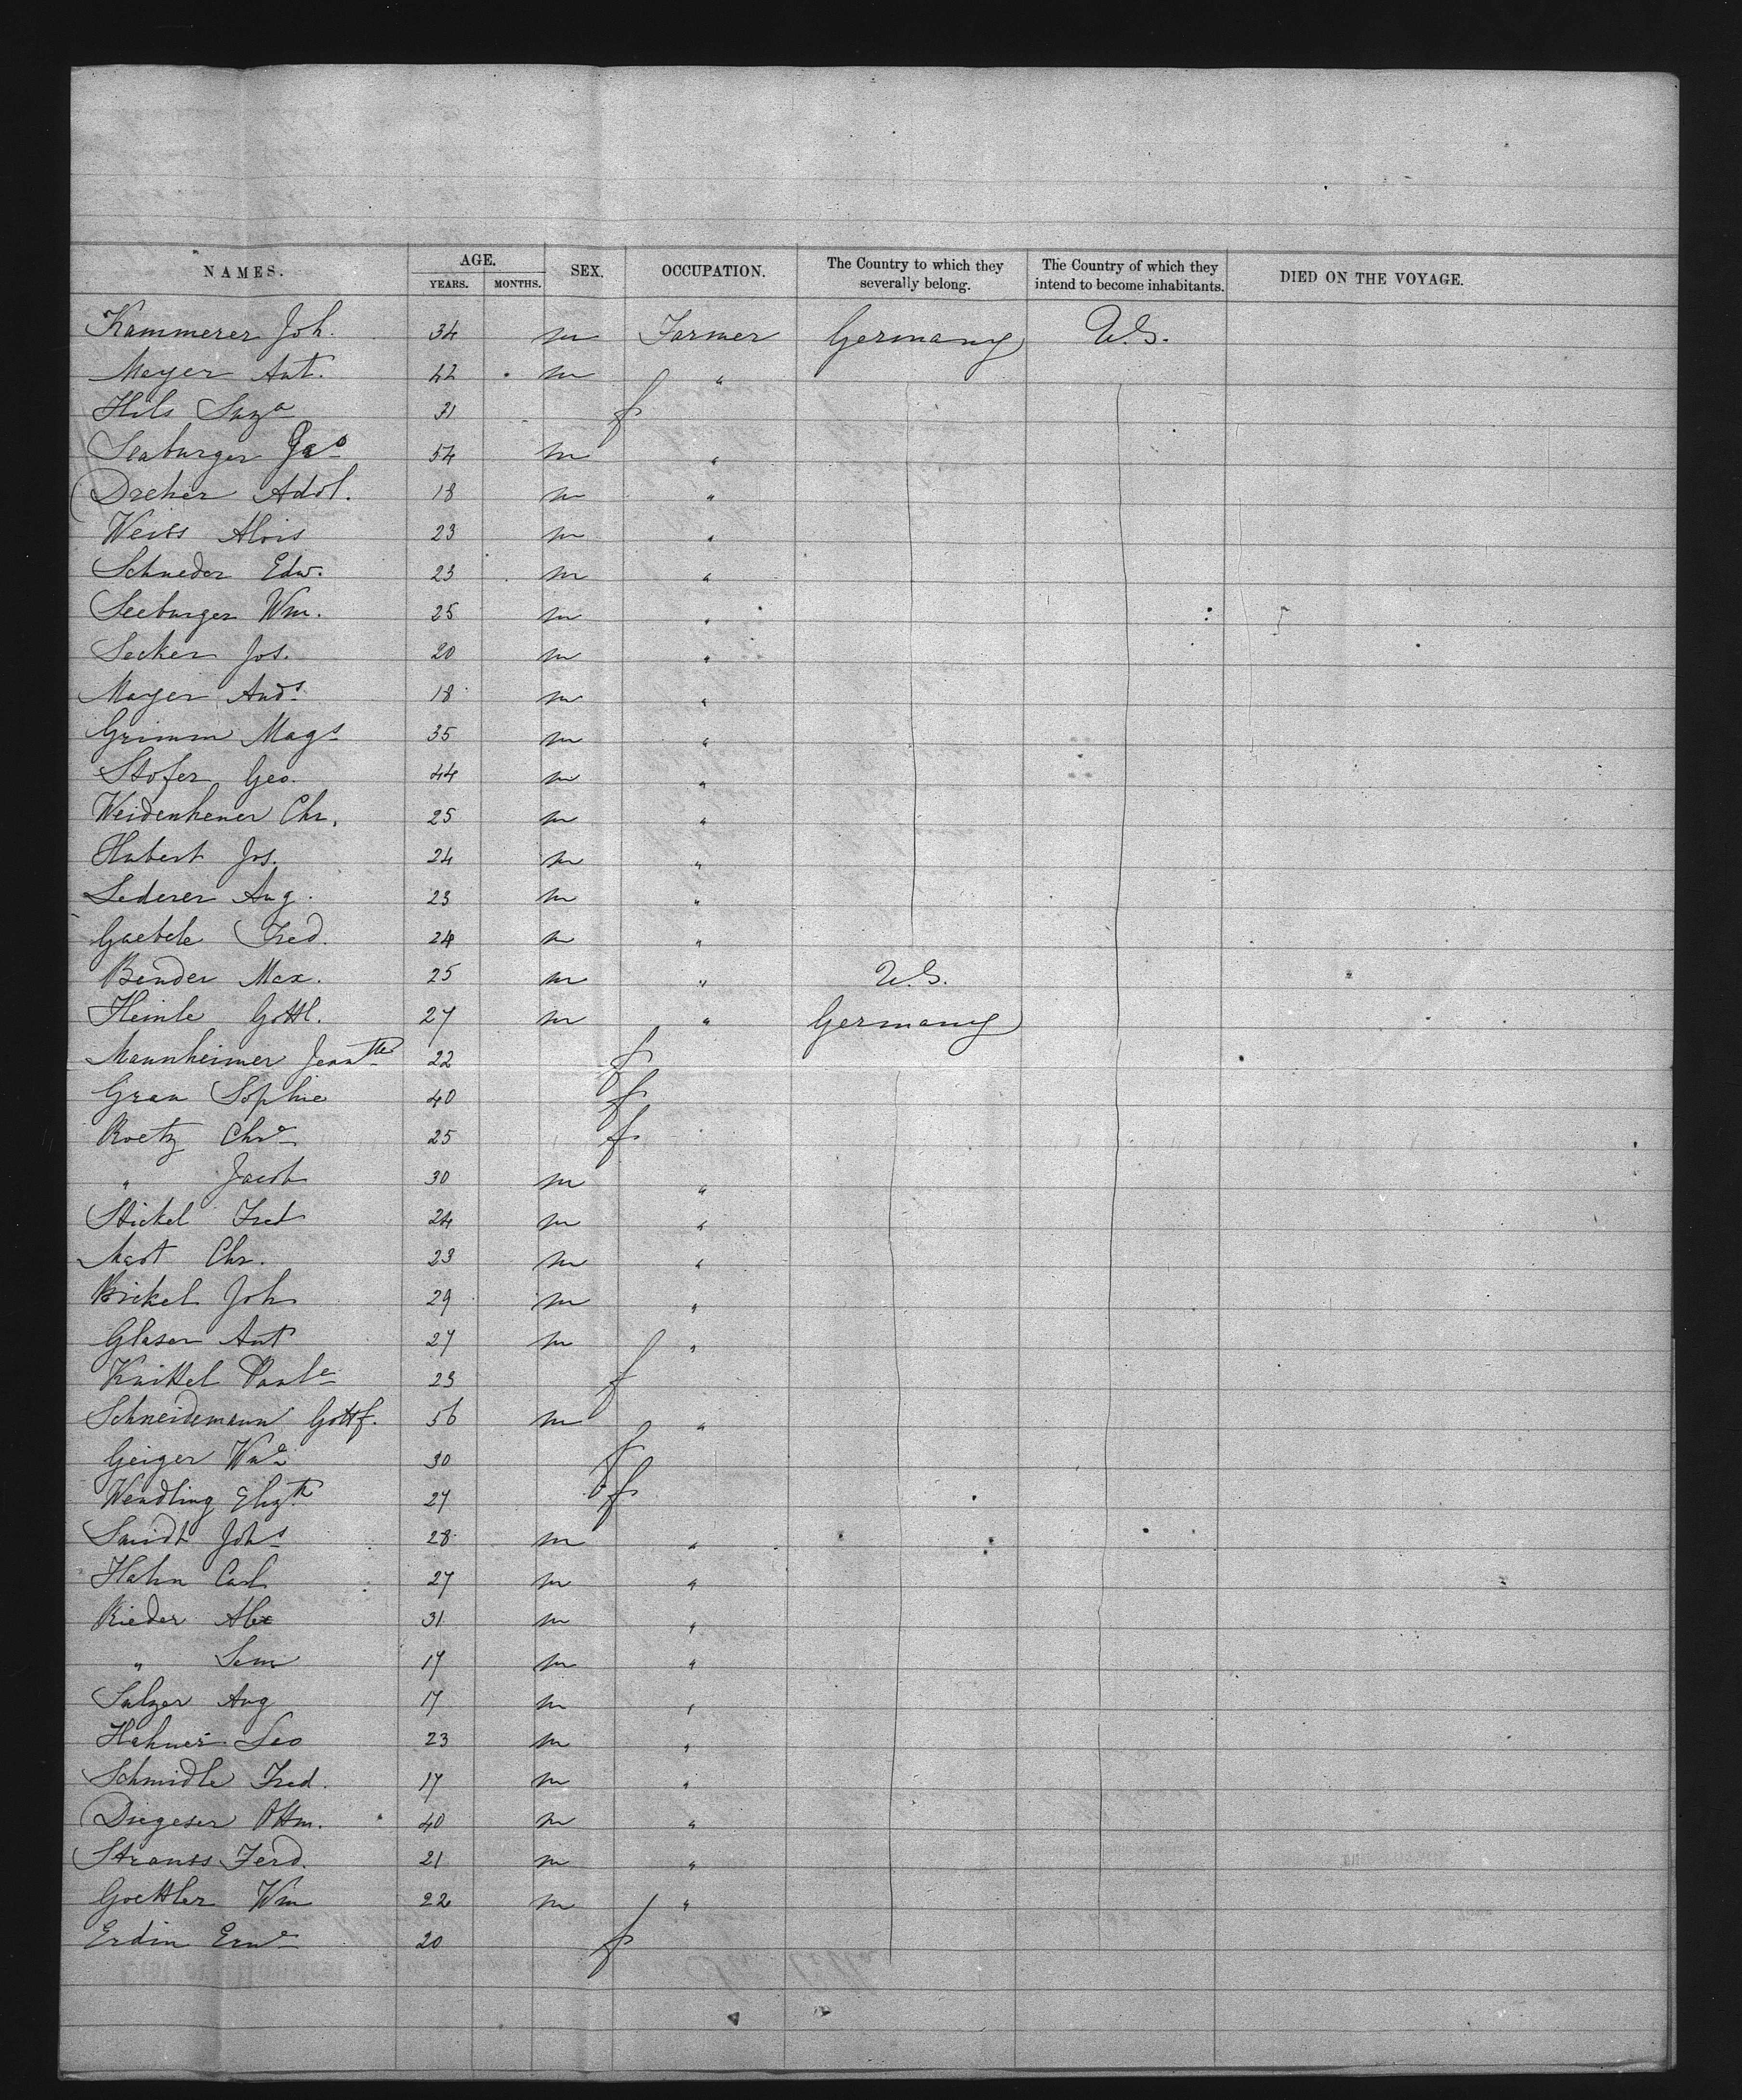 NAMES. AGE. YEARS. MONTHS. SEX. OCCUPATION. The Country to which they severally belong. The Country of which they intend to become inhabitants. DIED ON THE VOYAGE.
Kammerer Joh. 34 m Farmer Germany U.S.
Mayer Ant. 42 m "
Hils Suza 31 f
Seaburger Geo 54 m "
Dreher Adol. 18 m "
Weiss Alois 23 m "
Schneder Edw. 23 m "
Seeburger Wm. 25 m "
Secker Jos. 20 m "
Mayer Ands 18 m "
Grimm Mags 35 m "
Stofer Geo. 44 m "
Weidenhener Chr. 25 m "
Hubert Jos. 24 m "
Lederer Aug. 23 m "
Gaebele Fred. 24 m "
Bender Max. 25 m " U.S.
Heinle Gottl. 27 m " Germany
Mannheimer Jeantte 22 f
Grau Sophie 40 f
Roetz Chre 25 f
" Jacob 30 m "
Stickel Fred 24 m "
Mast Chr. 23 m "
Brickel Joh 29 m "
Glaser Ant 27 m "
Knittel Paule 23 f
Schneidemann Gottf. 56 m "
Geiger Wme 30 f
Wendling Elizth 27 f
Smidt Johs 28 m "
Hahn Carl 27 m "
Rieder Alex 31 m "
" Sem 17 m "
Sulzer Aug 17 m "
Hahner Leo 23 m "
Schmidle Fred. 17 m "
Diegeser Ottm. 40 m "
Strauss Ferd. 21 m "
Goettler Wm 22 m "
Erdin Erne 20 f